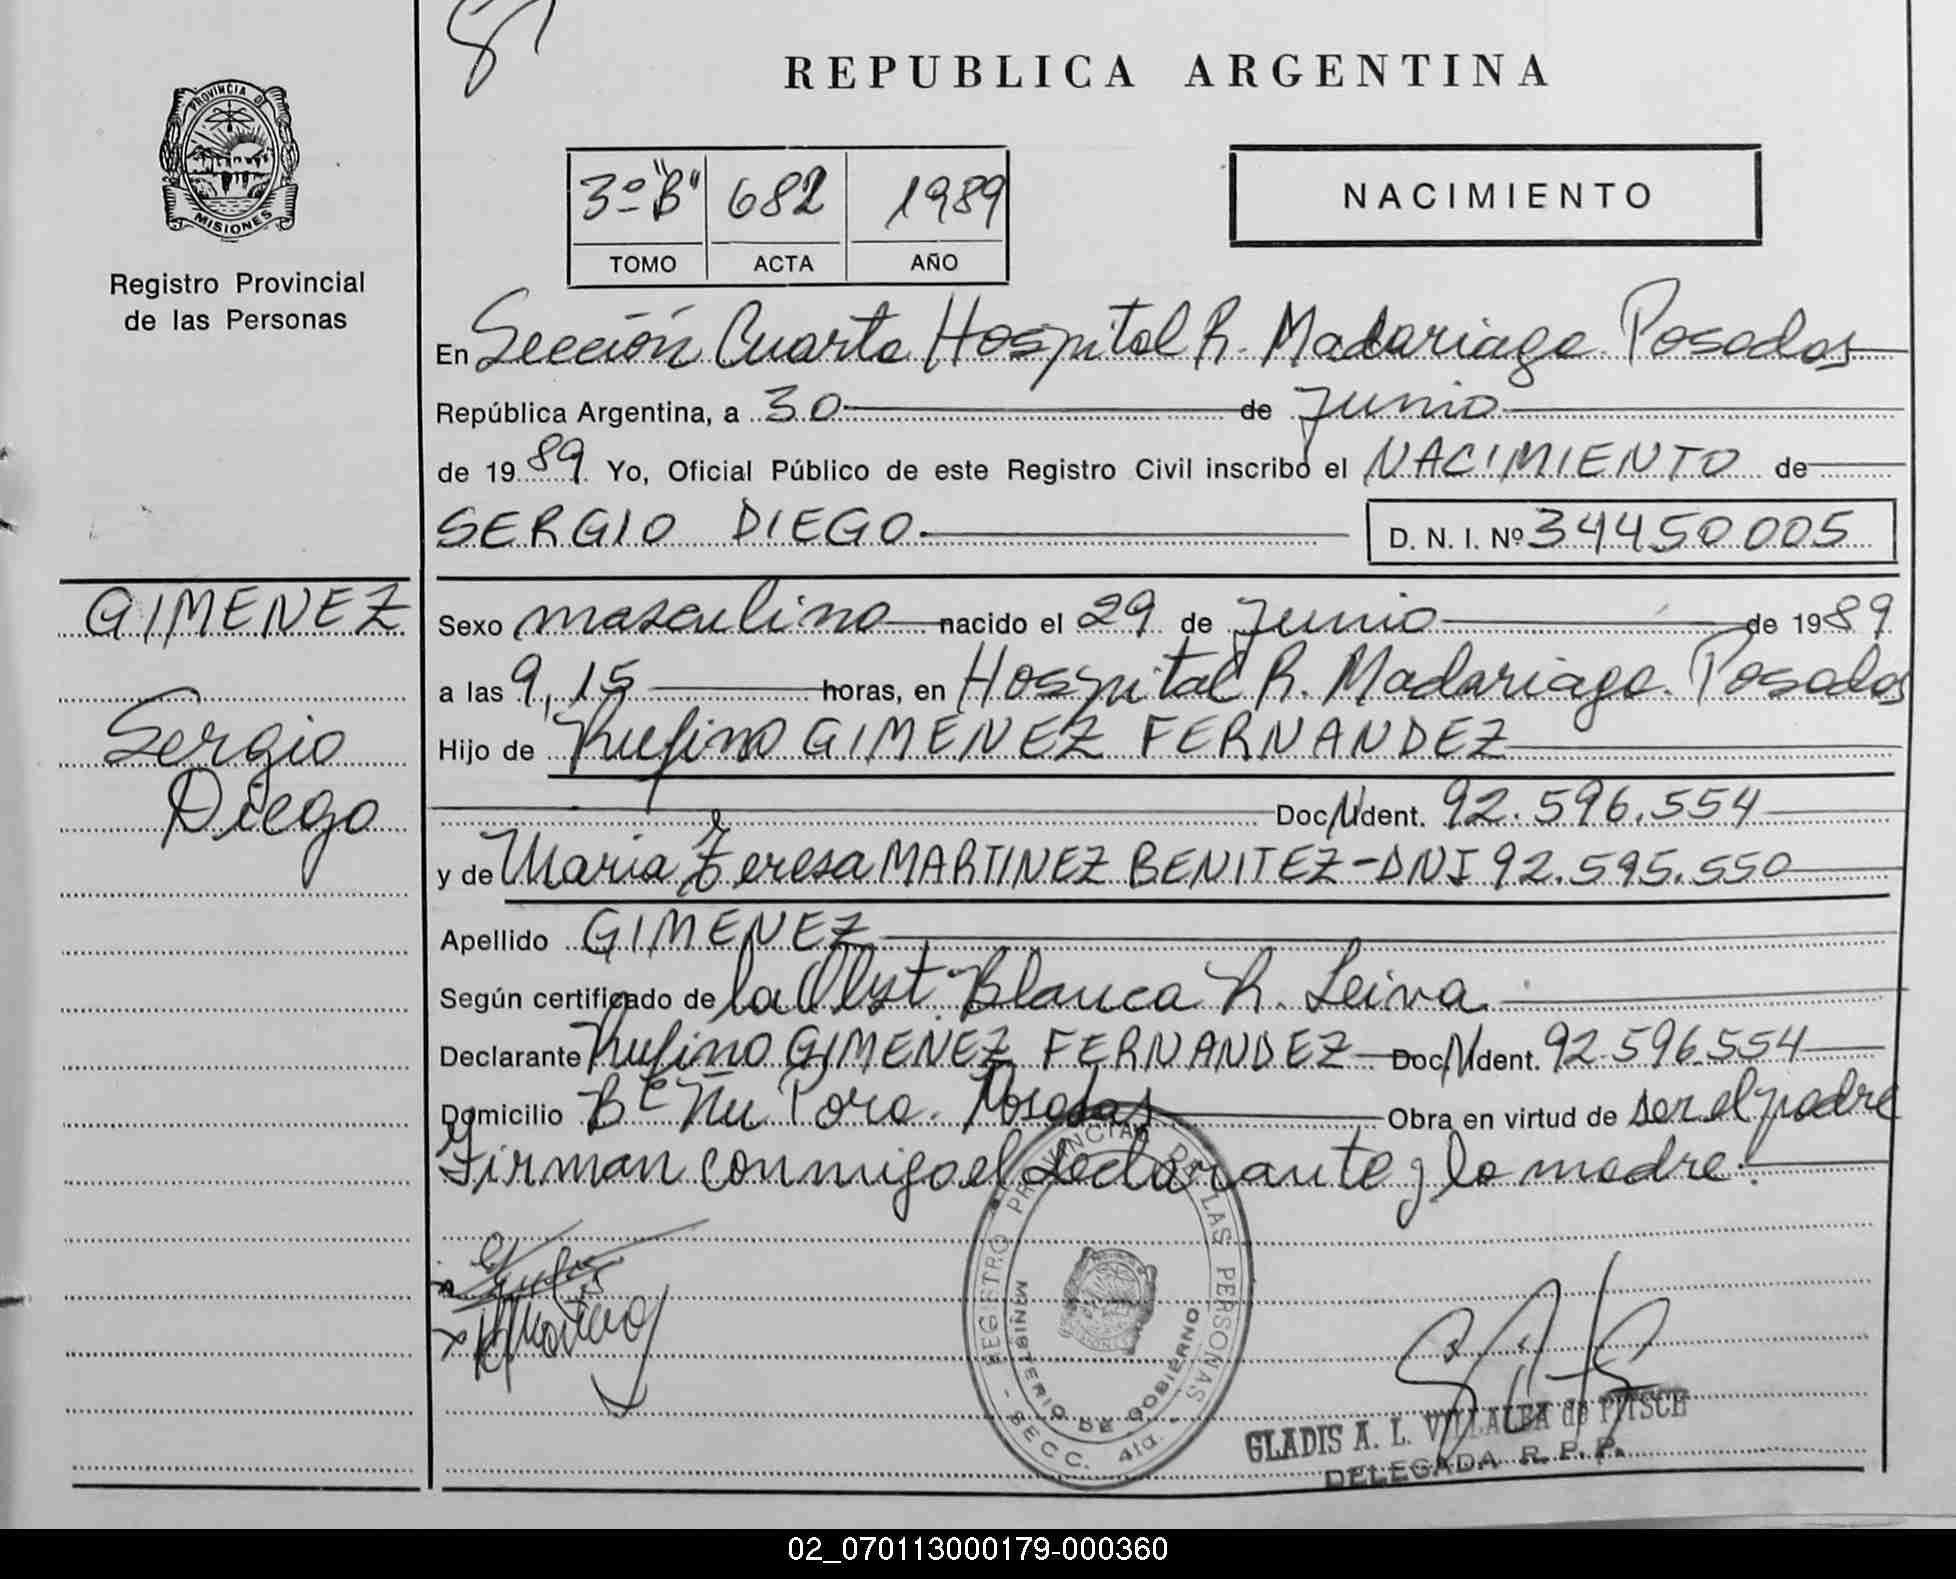 REPUBLICA ARGENTINA
PROVINCIA DE
MISIONES
Registro Provincial
de las Personas
3º "B" 682 1989
TOMO ACTA AÑO
NACIMIENTO
En Sección Cuarta Hospital R. Madariaga. Posadas
República Argentina, a 30 de Junio
de 1989. Yo, Oficial Público de este Registro Civil inscribo el NACIMIENTO de
SERGIO DIEGO.
D. N. I. Nº 34450005
GIMENEZ
Sergio
Diego
Sexo masculino nacido el 29 de Junio de 1989
a las 9,15 horas, en Hospital R. Madariaga. Posadas
Hijo de Rufino GIMENEZ FERNANDEZ
Doc. Ident. 92.596.554
y de Maria Teresa MARTINEZ BENITEZ-DNI 92.595.550
Apellido GIMENEZ
Según certificado de la Obst. Blanca R. Leiva.
Declarante Rufino GIMENEZ FERNANDEZ Doc. Ident. 92.596.554
Domicilio Bº Ñu Pora. Posadas Obra en virtud de ser el padre
Firman conmigo el declarante y la madre.
REGISTRO PROVINCIAL DE LAS PERSONAS - SECC. 4ta.
MINISTERIO DE GOBIERNO
GLADIS A. L. VILLALBA de PITSCH
DELEGADA R. P. P.
02_070113000179-000360